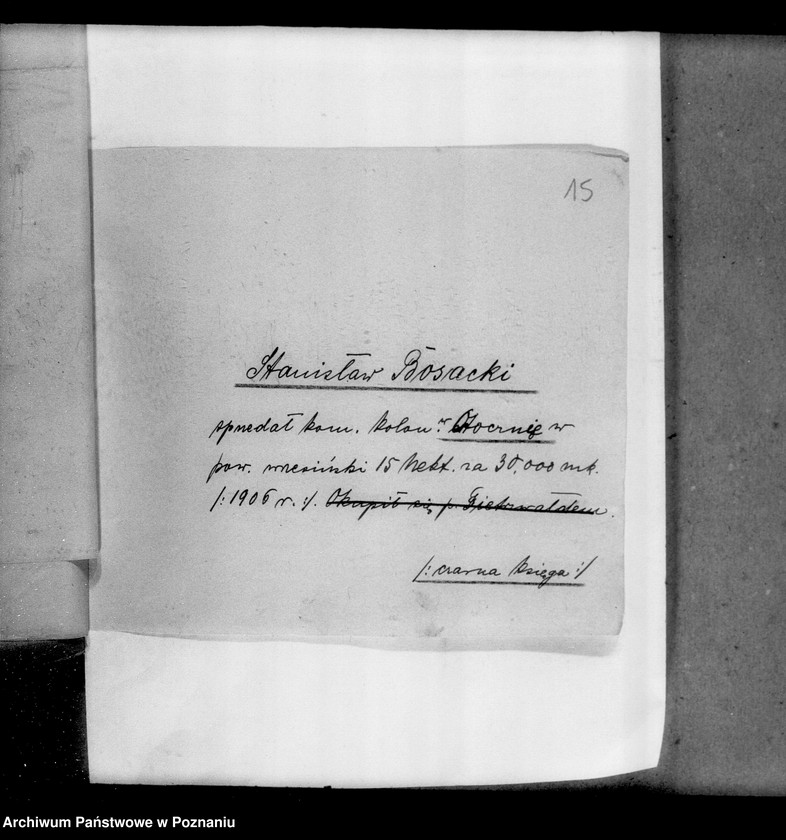 15
Stanisław Bosacki
sprzedał kom. kolon. w Otocznię w
pow. wrzesiński 15 hekt. za 30,000 mk.
/:1906 r.:/. Okupił się p. Fietzwałdem.
/: czarna księga :/
Archiwum Państwowe w Poznaniu